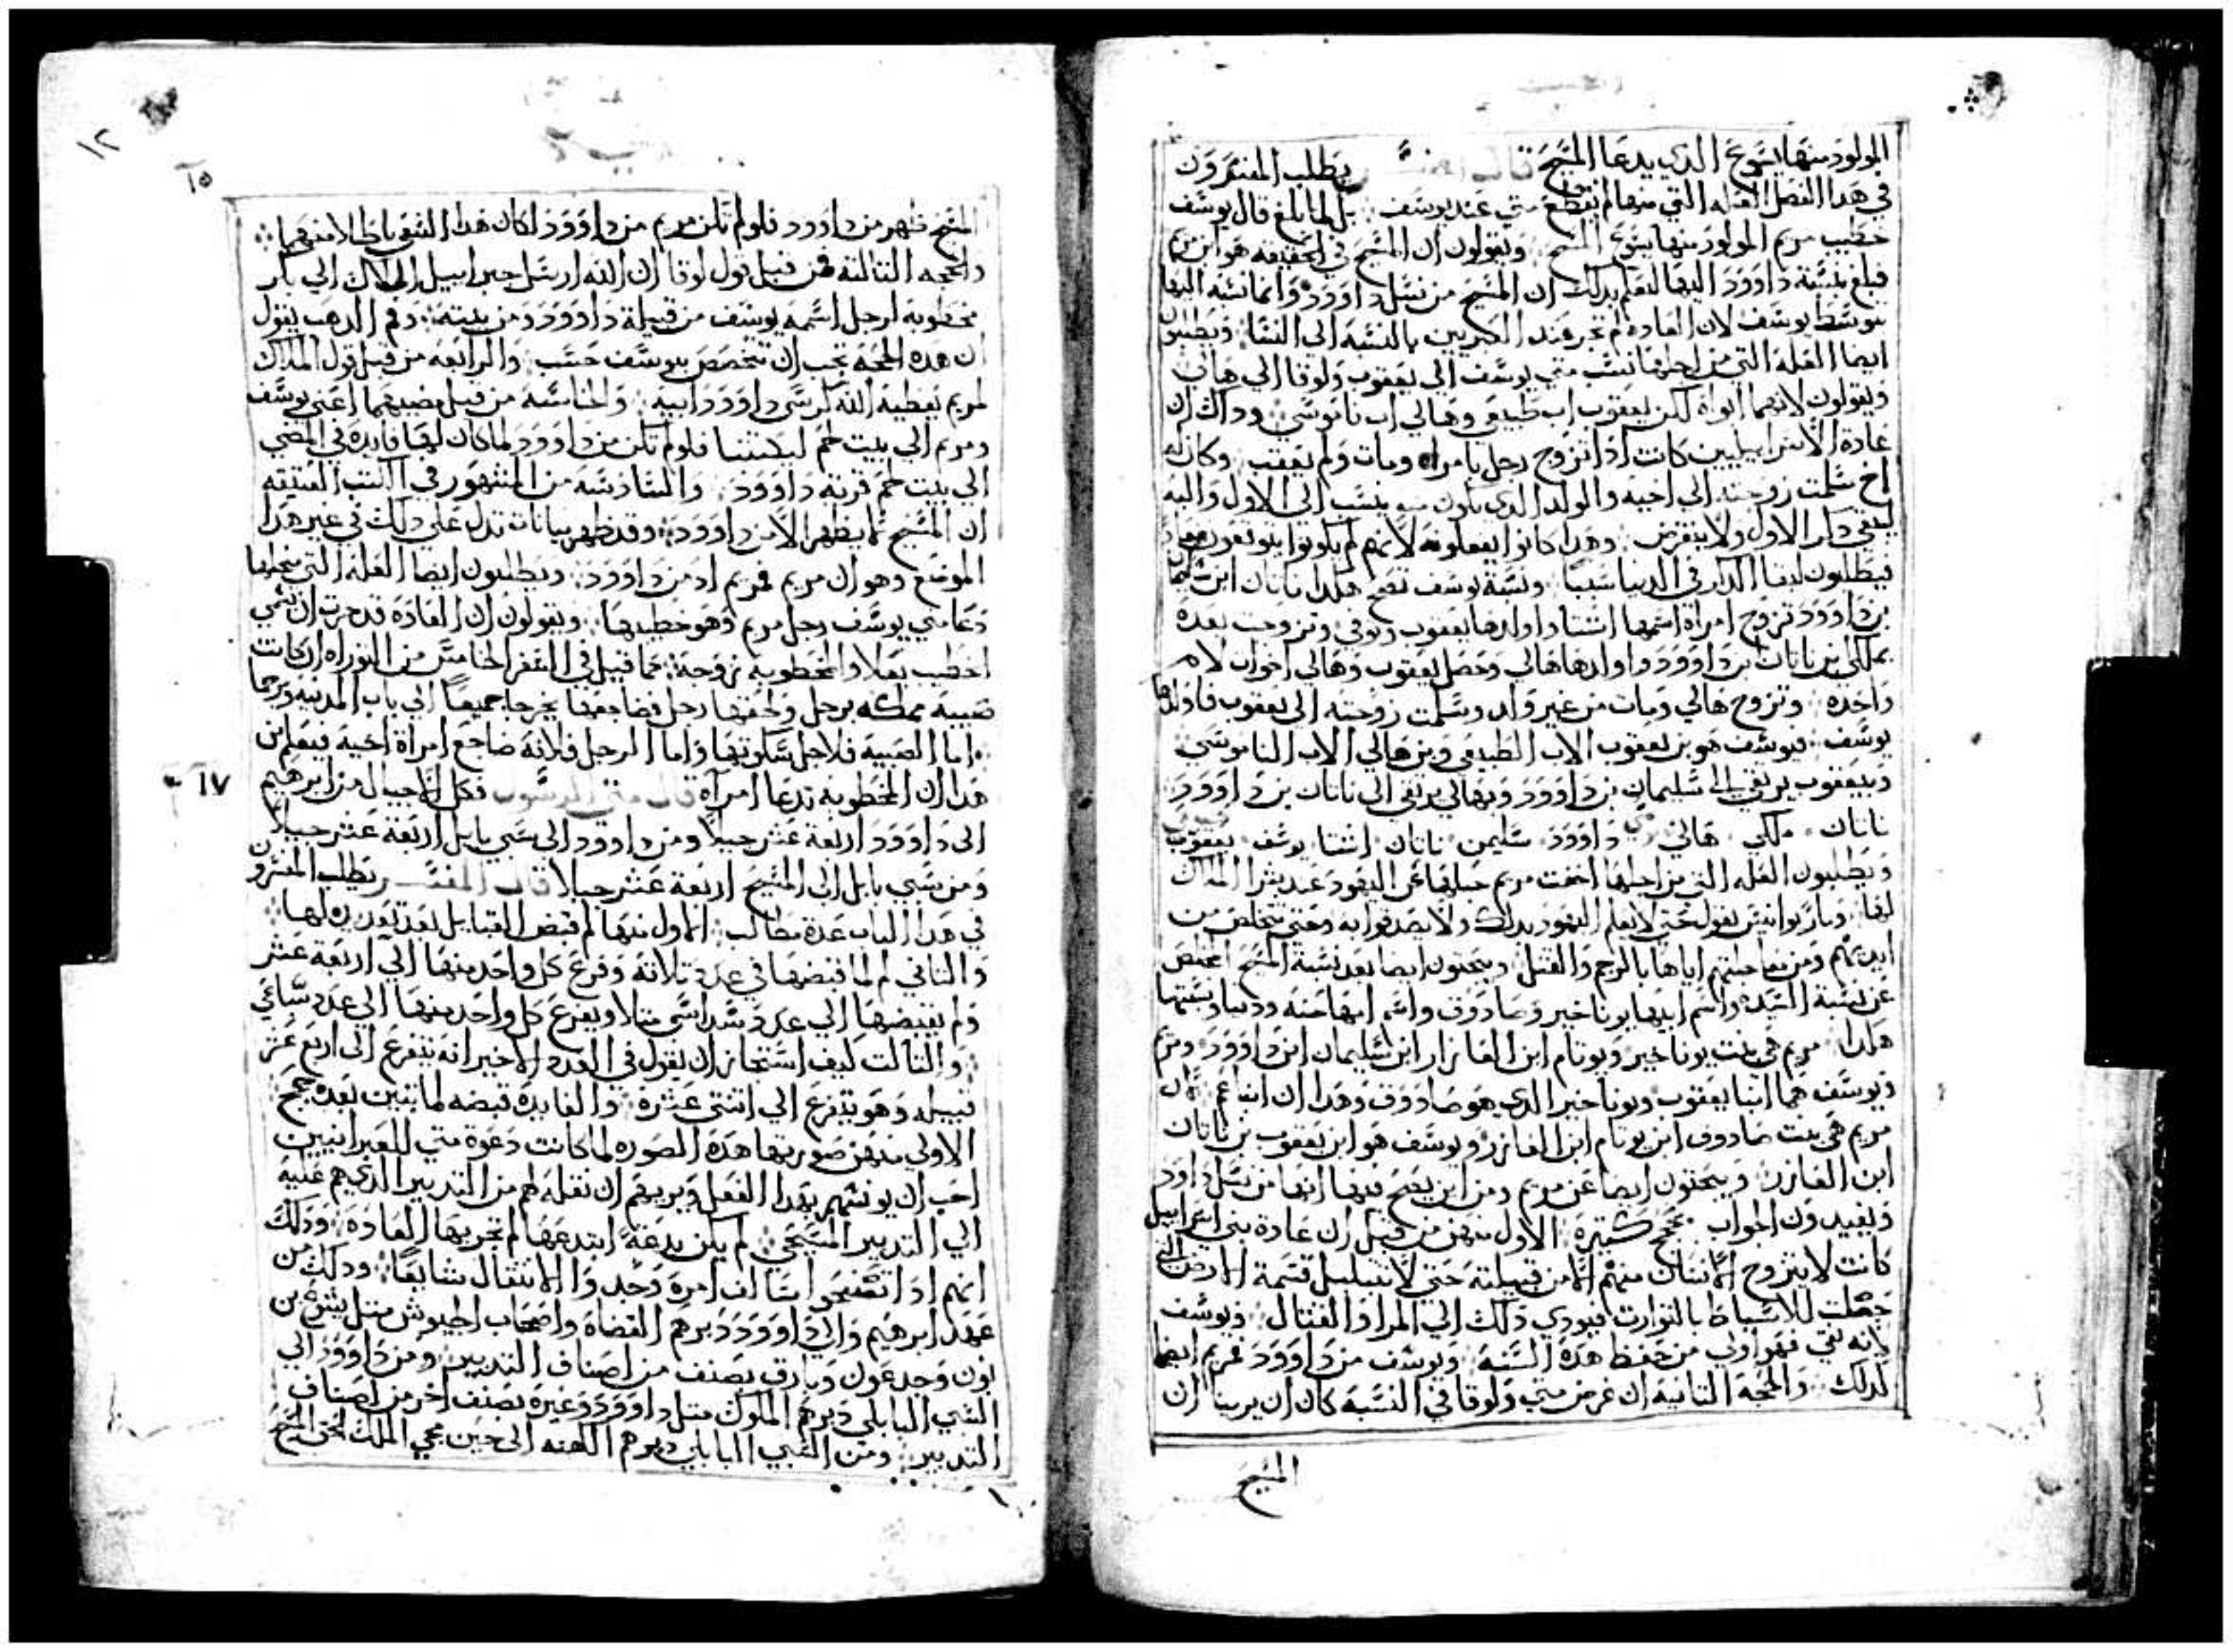 المولود منها يسوع الدي يدعا المسيح قال المفسر يطلب المفسرون
في هدا الفصل العله التي منها لم يقطع متي عند يوسف بل لما بلغ قال يوسف
خطيب مريم المولود منها يسوع المسيح ويقولون ان المسيح في الحقيقه هو ابن مريم
فبلغ بنسبة داوود اليها ليعلم بدلك ان المسيح من نسل داوود وانما نسبه اليها
بتوسط يوسف لان العاده لم تجر عند العبريين بالنسبه الي النسا ويطلبون
ايضا العله التي من اجلها نسب متي يوسف الي يعقوب ولوقا الي هالي
ويقولون لانهما ابواه لكن يعقوب اب طبيعي وهالي اب ناموسي ودلك ان
عادة الاسراييليين كانت ادا تزوج رجل بامراه ومات ولم يعقب وكان له
اخ سلمت زوجته الي اخيه والولد الدي يكون منه ينسب الي الاول واليه
ليبقي دكر الاول ولا ينقرض وهدا كانوا يفعلونه لانهم لم يكونوا يتوقعون معاد
فيطلبون لبقا الدكر في الدنيا سببا ونسبة يوسف تصح هكدا ناتان ابن سليمان
بن داوود تزوج امراة اسمها استا واولدها يعقوب وتوفي وتزوجت بعده
بملكي بن ناتان بن داوود واولدها هالي وحصل يعقوب وهالي اخوان لام
واحده وتزوج هالي ومات من غير ولد وسلمت زوجته الي يعقوب فاولدها
يوسف فيوسف هو بن يعقوب الاب الطبيعي وبن هالي الاب الناموسي
وبيعقوب يرتقي الي سليمان بن داوود وبهالي يرتقي الي ناتان بن داوود
ناتان ملكي هالي داوود سليمن ناتان استا يوسف يعقوب
ويطلبون العله التي من اجلها اخفت مريم حبلها عن اليهود عند بشر الملاك
لها ومار يوانيس يقول حتي لا يعلم اليهود بدلك ولا يصدقوا به وحتي تتخلص من
ايديهم ومن معاجلتهم اياها بالرجم والقتل ويبحتون ايضا بعد نسبة المسيح المختص
عن نسبة السيده واسم ابيها يوناخير وصادوف واسم امها حنه ودينا ونسبتها
هكدا مريم هي بنت يوناخير ويوتام ابن العازار ابن سليمان ابن داوود ومريم
ويوسف هما ابنا يعقوب ويوناخير الدي هو صادوف وهدا ان ابنا عم لان
مريم هي بنت صادوف ابن يوتام ابن العازر ويوسف هو ابن يعقوب بن ناتان
ابن العازر ويبحتون ايضا عن مريم ومن اين يصح فيها انها من نسل داود
ويفيدون الجواب بحجج كتيرة الاول منهن من قبل ان عادة بني اسراييل
كانت لا يتزوج الانسان منهم الا من قبيلته حتي لا تتبلبل قسمة الارض التي
جعلت للاسباط بالتوارت فيودي دلك الي المرا والقتال ويوسف
لانه تقي فهو اولي من حفظ هده السنه ويوسف من داوود فمريم ايضا
كدلك والحجة التانية ان غرض متي ولوقا في النسبه كان ان يريانا ان
المسيح
١٢
١٥
المسيح ظهر من داوود فلو لم تكن مريم من داوود لكان هدا السعي باطلا منهما
والحجه التالته فمن قبل قول لوقا ان الله ارسل جبراييل الملاك الي بكر
مخطوبه لرجل اسمه يوسف من قبيلة داوود ومن بيته وفم الدهب يقول
ان هده الحجه يجب ان تتخصص بيوسف حسب والرابعه من قبل قول الملاك
لمريم يعطيه الله كرسي داوود ابيه والخامسه من قبل مضيهما اعني يوسف
ومريم الي بيت لحم ليكتتبا فلو لم تكن من داوود لما كان لها فايده في المضي
الي بيت لحم قرية داوود والسادسه من المشهور في الكتب العتيقه
ان المسيح لا يظهر الا من داوود وقد ظهر بيانات تدل علي دلك في غير هدا
الموضع وهو ان مريم فمريم اد من داوود ويطلبون ايضا العله التي من اجلها
دعا متي يوسف رجل مريم وهو خطيبها ويقولون ان العاده قد جرت ان تسمي
الخطيب بعلا والمخطوبه زوجة كما قيل في السفر الخامس من التوراه ان كانت
صبية مملكه برجل ولحقها رجل فضاجعها يخرجا جميعا الي باب المدينه ويرجما
اما الصبيه فلاجل سكوتها واما الرجل فلانه ضاجع امراة اخيه فيعلم ان
هدا ان المخطوبه تدعا امراه قال متي الرسول فكل الاجيال من ابرهيم
١٧
الي داوود اربعة عشر جيلا ومن داوود الي سبي بابل اربعة عشر جيلا
ومن سبي بابل الي المسيح اربعة عشر جيلا قال المفسر يطلب المفسرون
في هدا الباب عدة مطالب الاول منها لم قبض القبايل بعد تعديده لها
والتاني لم لما قبضها في عدد تلاتة وفرع كل واحد منها الي اربعة عشر
ولم يقبضها الي عدد سداسي متلا ويفرع كل واحد منها الي عدد سباعي
والتالت كيف استجاز ان يقول في العدد الاخير انه يتفرع الي اربع عشر
قبيله وهو يتفرع الي اتنتي عشرة والفايدة قبضه لما يتبين بعده حجج
الاولي منهن صورتها هده الصوره لما كانت دعوة متي للعبرانيين
احب ان يونسهم بهدا الفعل ويريهم ان نقله لهم من التدبير الدي هم عليه
الي التدبير المسيحي لم يكن بدعة ابتدعها لم تجر بها العاده ودلك
انهم ادا تصفحوا سالف امره وجد والانتقال شايعا ودلك من
عهد ابرهيم والي داوود دبرهم القضاه واصحاب الجيوش متل يشوع بن
نون وجدعون وبارق بصنف من اصناف التدبير ومن داوود الي
السبي البابلي دبرهم الملوك متل داوود وغيره بصنف اخر من اصناف
التدبير ومن السبي البابلي دبرهم الكهنه الي حين مجي الملك الحق المسيح